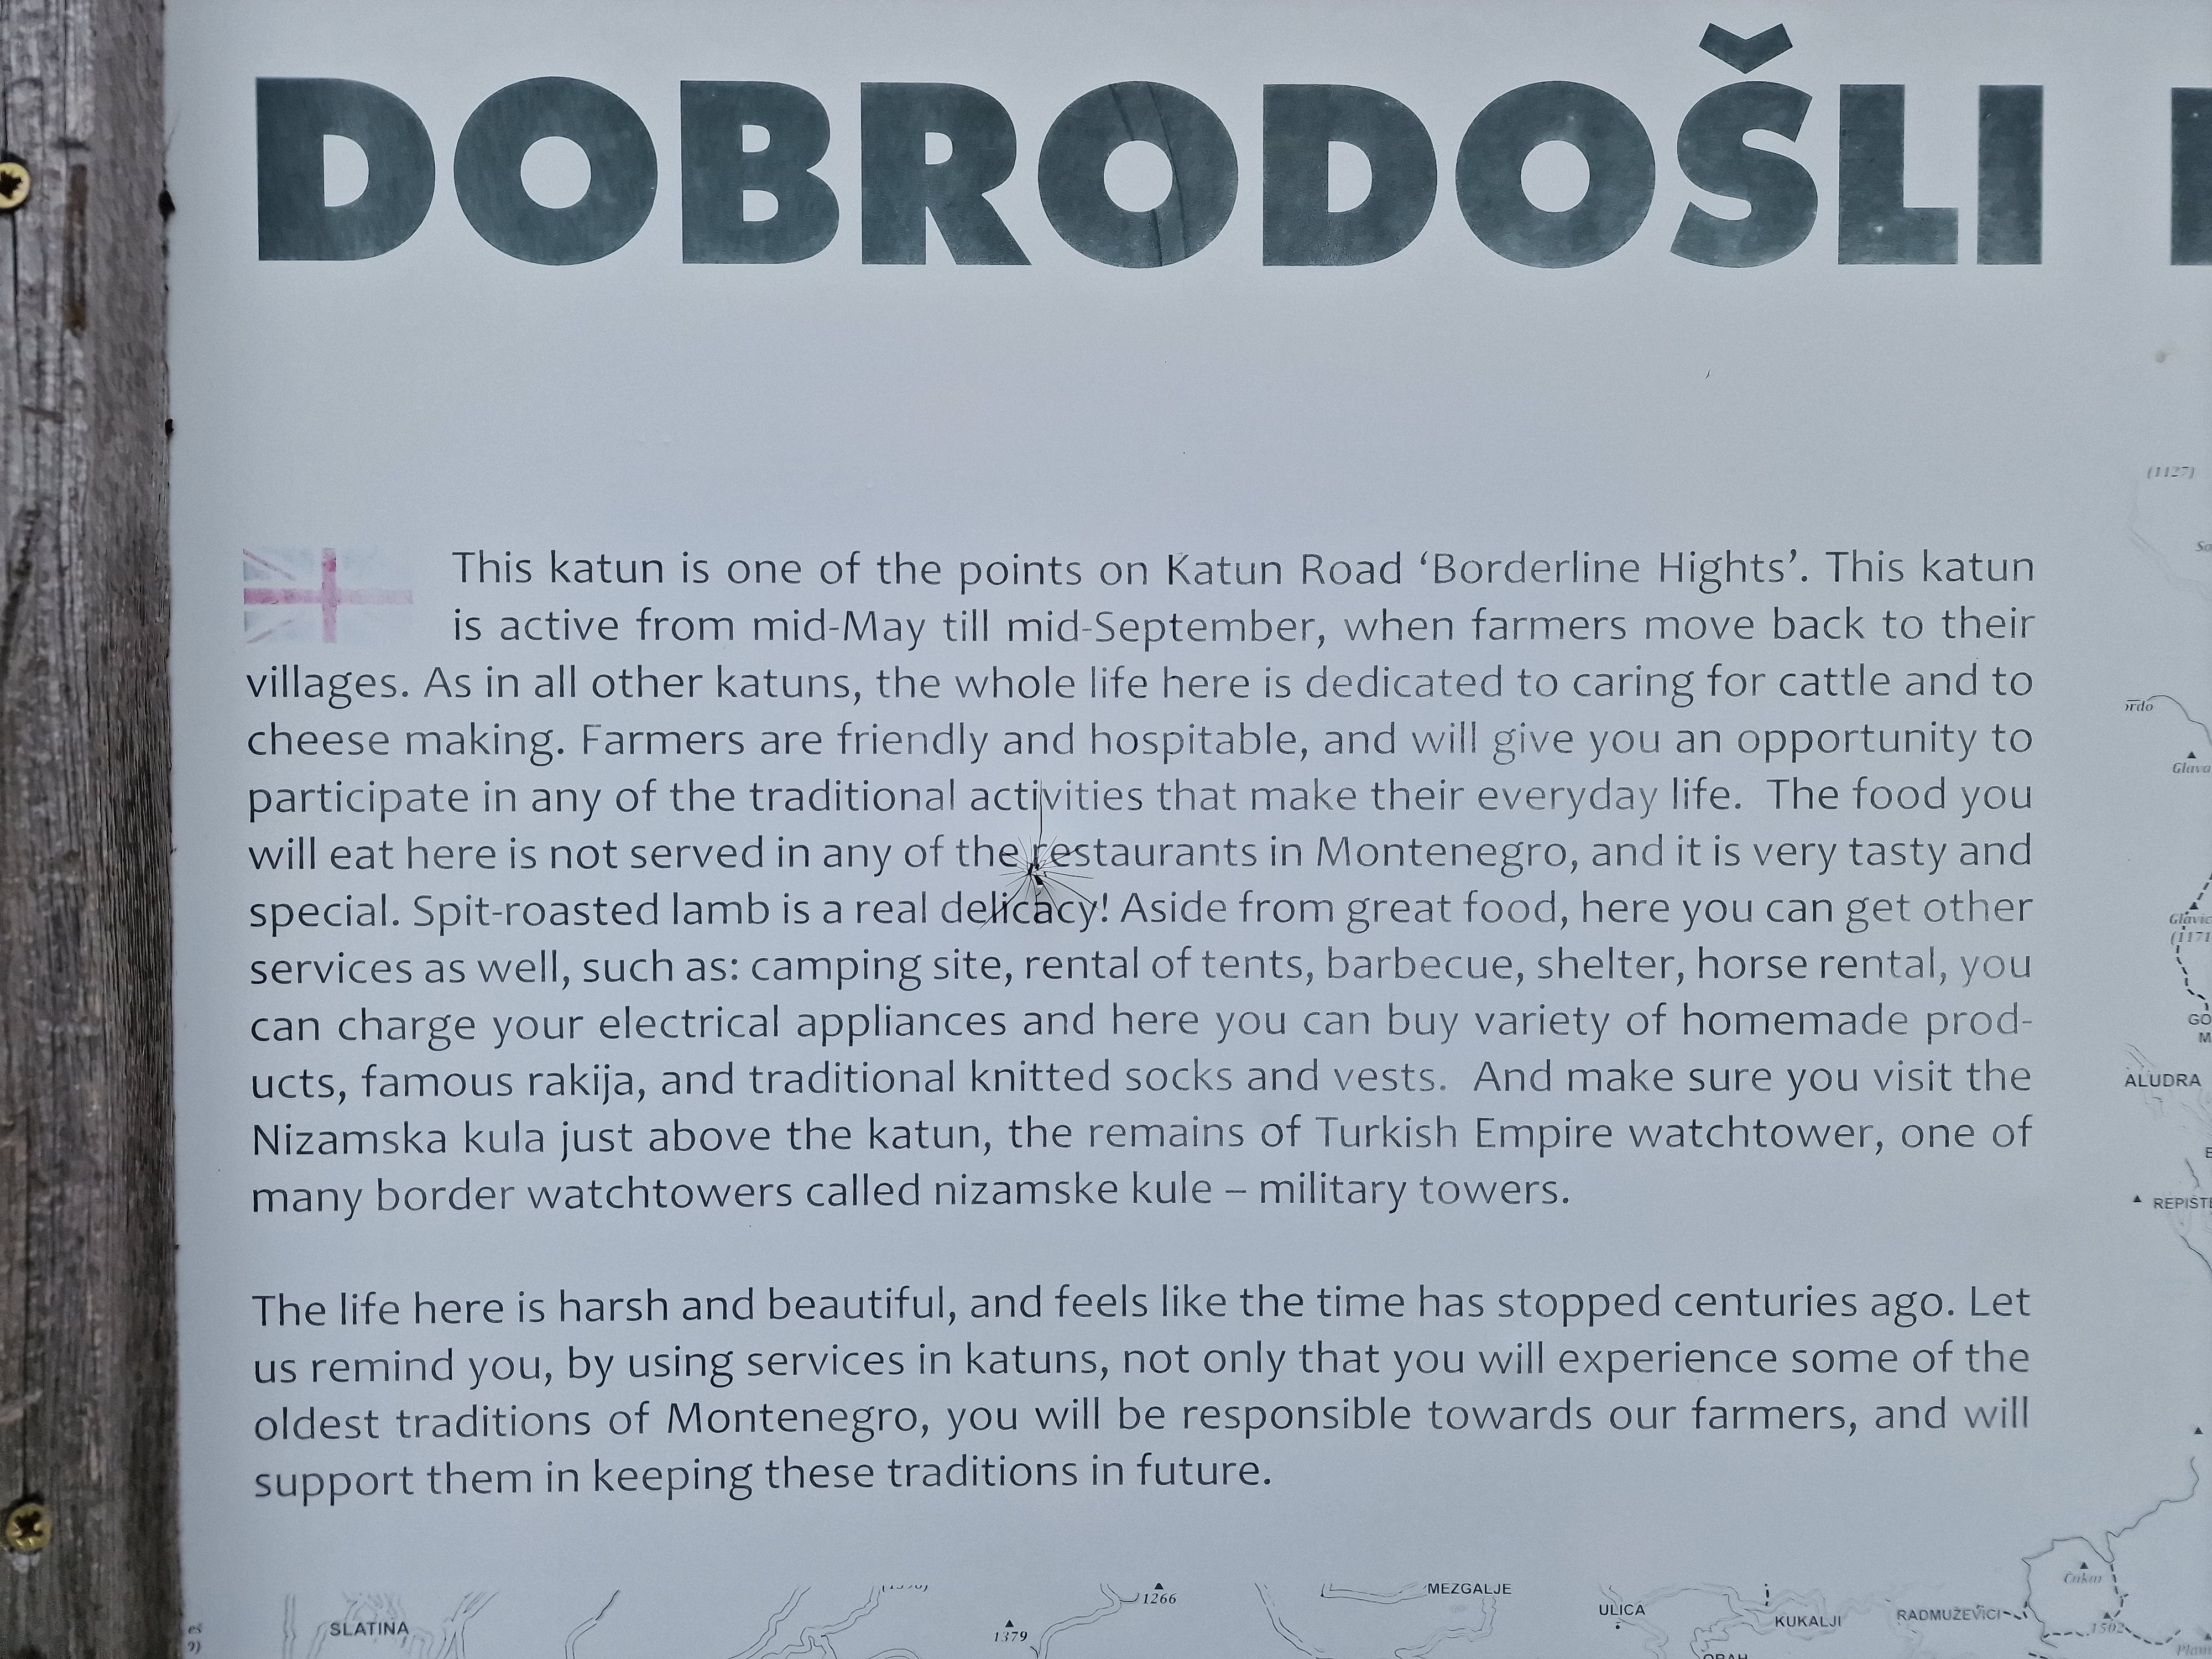 DOBRODOŠLI
(1127)
This katun is one of the points on Katun Road ‘Borderline Hights’. This katun
is active from mid-May till mid-September, when farmers move back to their
villages. As in all other katuns, the whole life here is dedicated to caring for cattle and to
cheese making. Farmers are friendly and hospitable, and will give you an opportunity to
participate in any of the traditional activities that make their everyday life. The food you
will eat here is not served in any of the restaurants in Montenegro, and it is very tasty and
special. Spit-roasted lamb is a real delicacy! Aside from great food, here you can get other
services as well, such as: camping site, rental of tents, barbecue, shelter, horse rental, you
can charge your electrical appliances and here you can buy variety of homemade prod-
ucts, famous rakija, and traditional knitted socks and vests. And make sure you visit the
Nizamska kula just above the katun, the remains of Turkish Empire watchtower, one of
many border watchtowers called nizamske kule – military towers.
The life here is harsh and beautiful, and feels like the time has stopped centuries ago. Let
us remind you, by using services in katuns, not only that you will experience some of the
oldest traditions of Montenegro, you will be responsible towards our farmers, and will
support them in keeping these traditions in future.
Glava
ALUDRA
Čakar
1502
SLATINA
1379
1266
MEZGALJE
ULICA
KUKALJI
RADMUŽEVIĆI